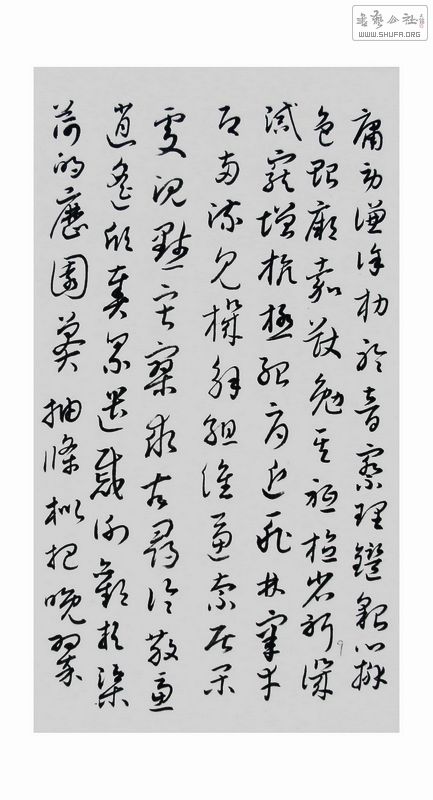 書藝公社
WWW.SHUFA.ORG
庸勞謙謹勑聆音察理鑑貌辨
色貽厥嘉猷勉其祗植省躬譏
誡寵增抗極殆辱近恥林皋幸
即兩疏見機解組誰逼索居閑
處沉默寂寥求古尋論散慮
逍遙欣奏累遣慼謝歡招渠
荷的歷園莽抽條枇杷晚翠